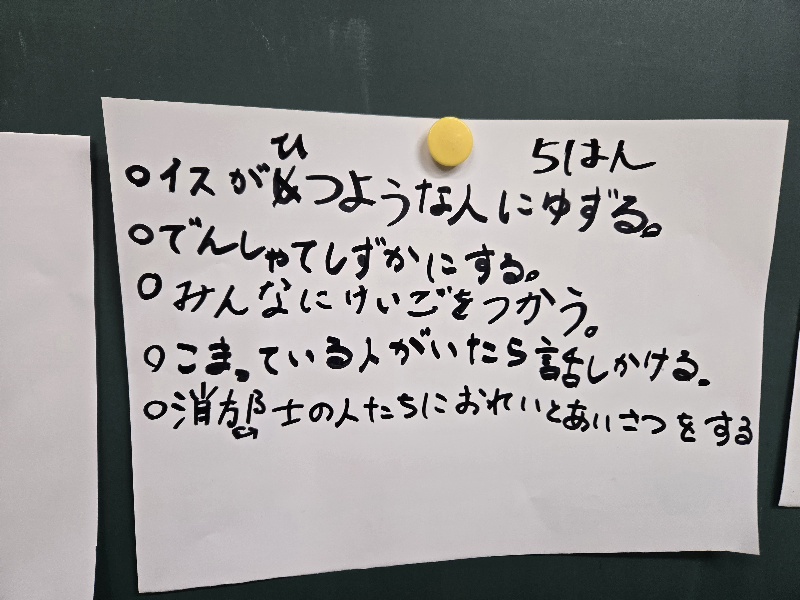 5はん
○イスがひつような人にゆずる。
○でんしゃてしずかにする。
○みんなにけいごをつかう。
○こまっている人がいたら話しかける。
○消防士の人たちにおれいとあいさつをする